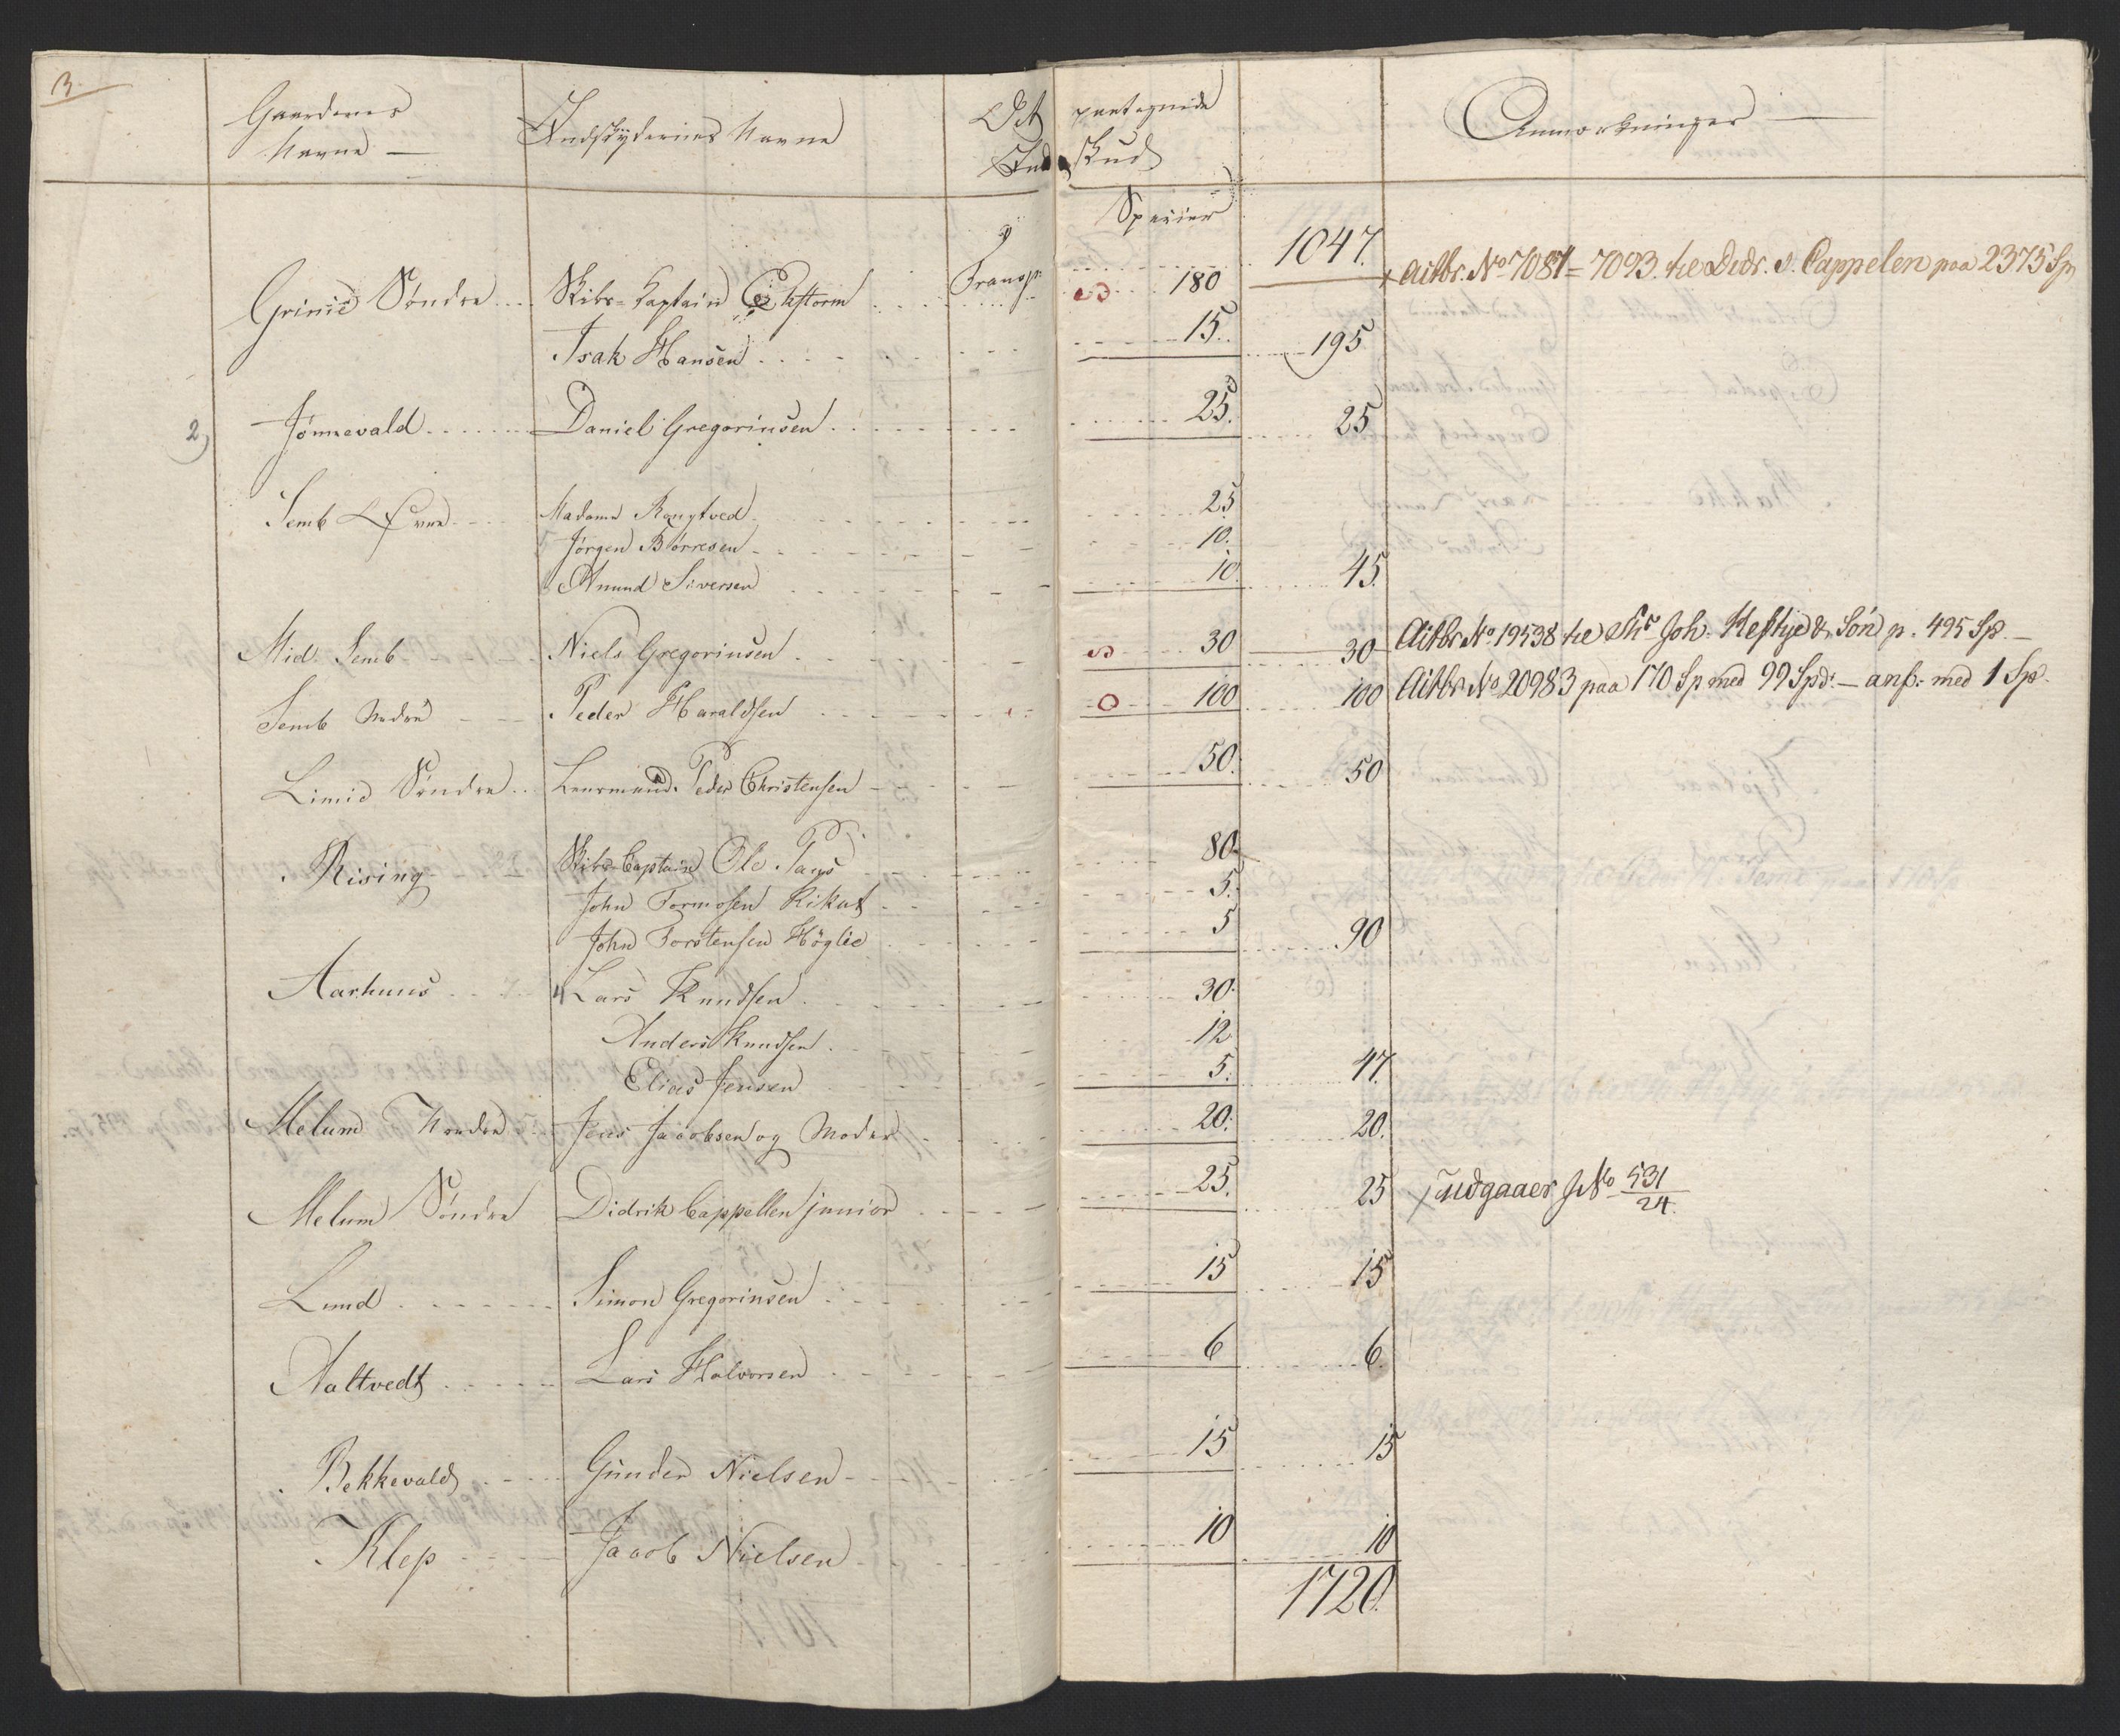 3.
Gaardenes Navne — Indskydernes Navne Det paategnede Indskud Anmærkninger —
Specier
Transp. 1047.
Grinie Søndre Skibs-Captain Ekstorm 180 Actbr. No 7081 = 7093 til Didr. v. Cappelen paa 2375 Sp
Isak Hansen 15. 195
2) Jønnevald Daniel Gregoriusen 25. 25
Semb Øvre Madame Rongtved 25
Jørgen Børresen 10.
Amund Siversen 10. 45.
Mid. Semb Niels Gregoriusen 30 30 Actbr No 19538 til Joh. Heftye & Søn p. 495 Sp. —
Semb Nedre Peder Haraldsen 100 100 Actbr No 20983 paa 170 Sp med 99 Spd: — anf: med 1 Sp.
Limie Søndre Leensmand Peder Christensen 50. 50
Rising Skibs-Captain Ole Paus 80.
John Tormosen Kikut 5.
John Torstensen Høglie 5 90
Aarhuus Lars Knudsen 30.
Anders Knudsen 12
Elias Jensen 5. 47.
Melum Nordre Jens Jacobsen og Moder 20. 20.
Melum Søndre Didrik Cappellen junior 25. 25 Udgaaer JNo 531/24.
Lund Simon Gregoriusen 15 15
Aaltvedt Lars Halvorsen 6 6.
Bekkevald Gunder Nielsen 15 15
Klep Jacob Nielsen 10 10
1720.